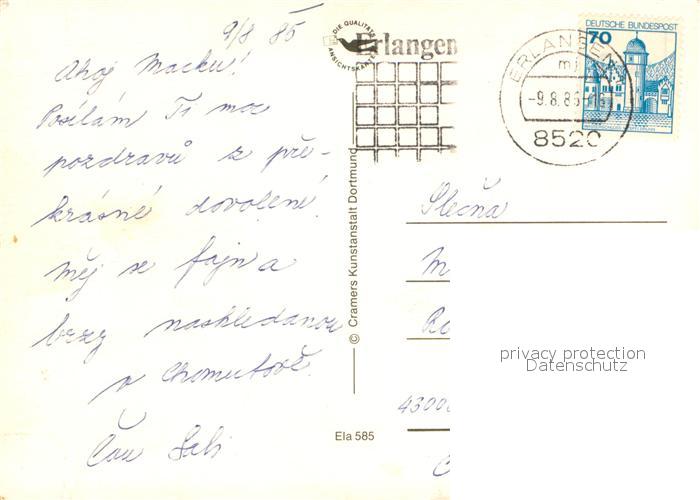 9/8 85
Ahoj Macku!
Posílám Ti moc
pozdravů z pře-
krásné dovolené.
Měj se fajn a
brzy nashledanou
v Chomutově.
Čau
DIE QUALITÄTS
ANSICHTSKARTE
Erlangen
ERLANGEN
-9.8.85
8520
DEUTSCHE BUNDESPOST
70
© Cramers Kunstanstalt Dortmund
Slečna
M
R
4300
privacy protection
Datenschutz
Ela 585